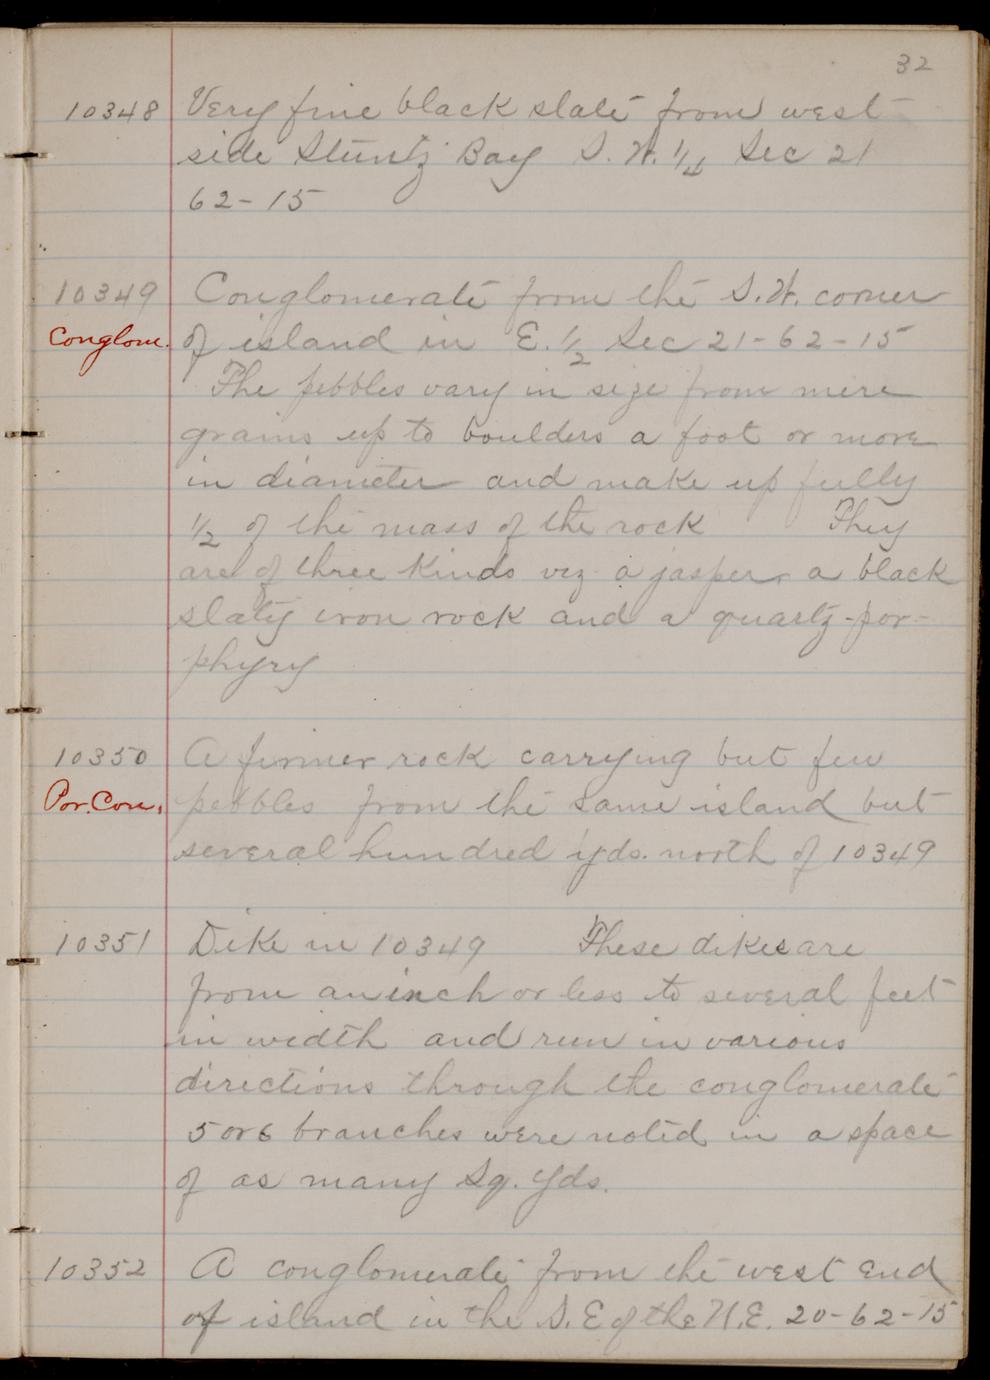 32
10348 Very fine black slate from west
side Stuntz Bay S.W. 1/4 Sec 21
62-15
10349 Conglomerate from the S.W. corner
Conglom. of island in E. 1/2 Sec 21-62-15
The pebbles vary in size from mere
grains up to boulders a foot or more
in diameter and make up fully
1/2 of the mass of the rock They
are of three kinds viz a jasper, a black
slaty iron rock and a quartz-por-
phyry
10350 A firmer rock carrying but few
Por. Con. pebbles from the same island but
several hundred yds. north of 10349
10351 Dike in 10349 These dikes are
from an inch or less to several feet
in width and run in various
directions through the conglomerate
5 or 6 branches were noted in a space
of as many Sq. Yds.
10352 A conglomerate from the west end
of island in the S.E of the N.E. 20-62-15